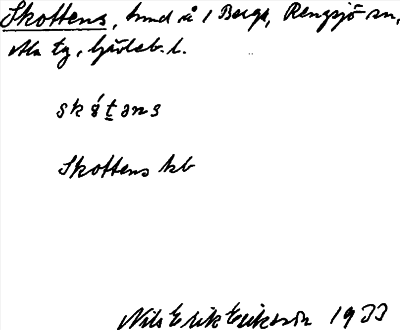 Skottens, hmd å 1 Berge, Rengsjö sn,
Ala tg, Gävleb. l.
skɔ́t̲əns
Skottens kb
Nils Erik Eriksson 1933